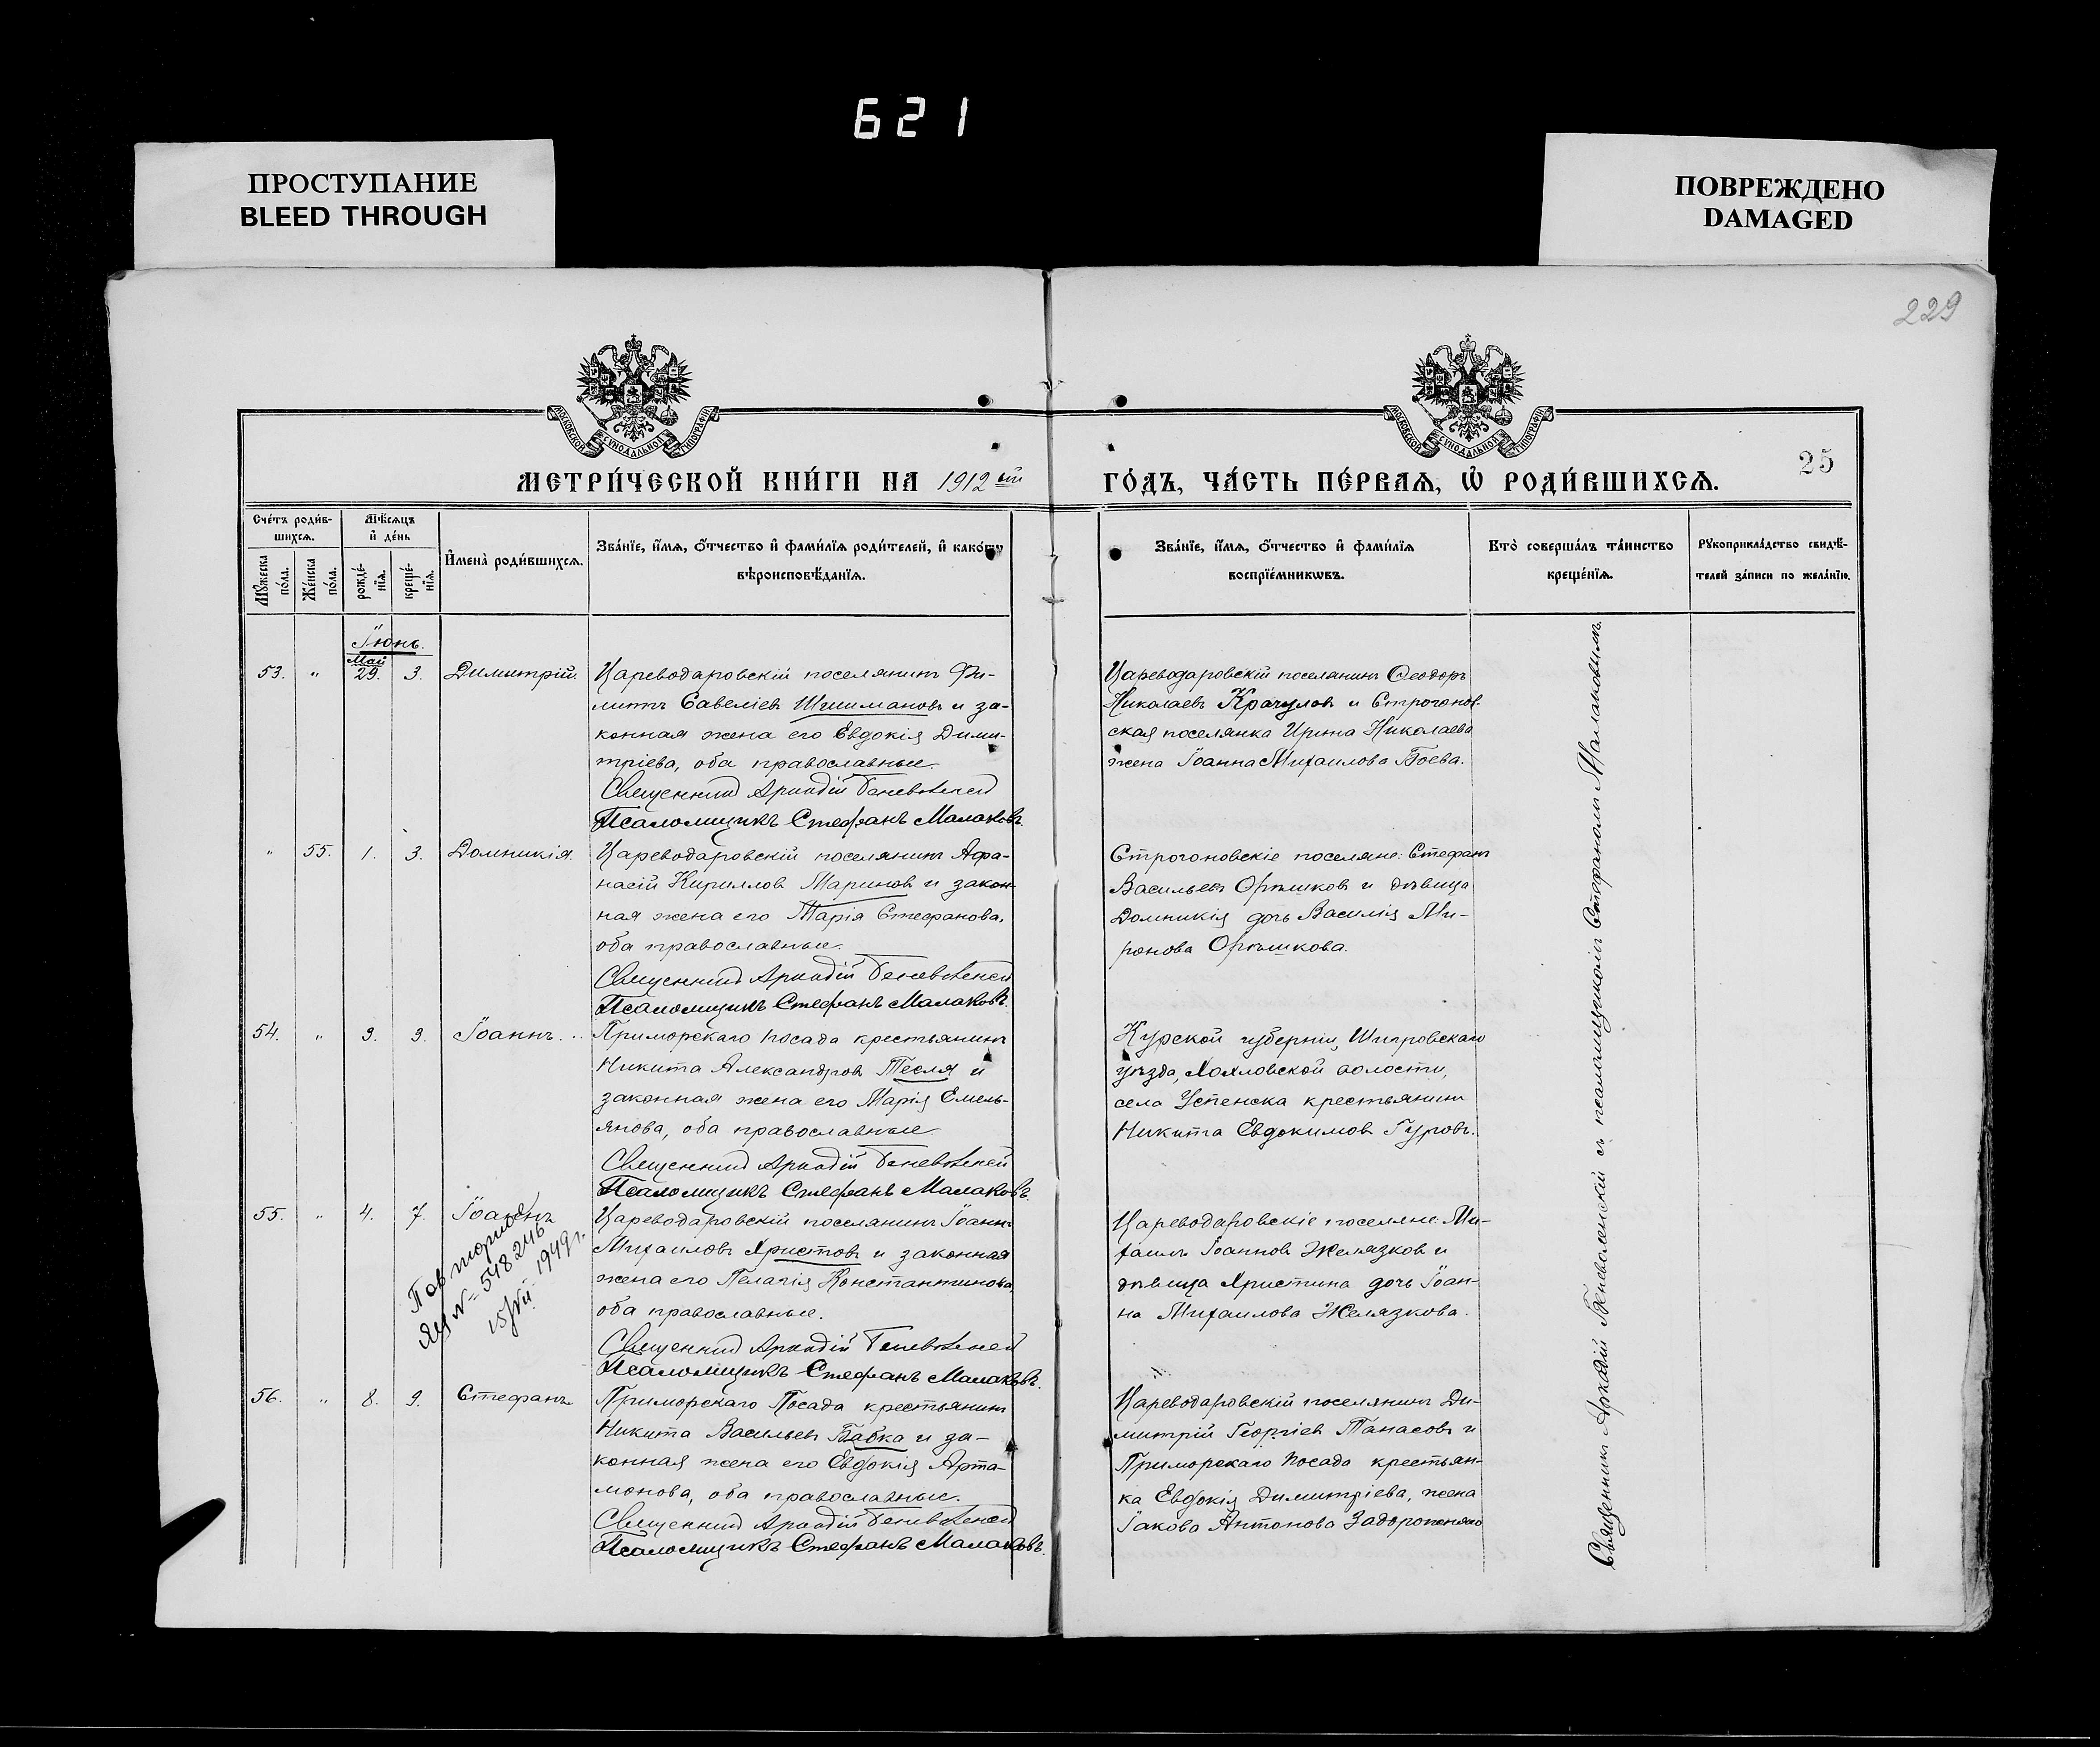 621
ПРОСТУПАНИЕ
BLEED THROUGH
ПОВРЕЖДЕНО
DAMAGED
229
МОСКОВСКОЙ СѴНОДАЛЬНОЙ ТИПОГРАФІИ
МОСКОВСКОЙ СѴНОДАЛЬНОЙ ТИПОГРАФІИ
МЕТРИ́ЧЕСКОЙ КНИ́ГИ НА 1912 ый
ГО́ДЪ, ЧА́СТЬ ПЕ́РВАѦ, Ѡ҆ РОДИ́ВШИХСѦ.
25
Сче́тъ роди́в-
шихсѧ.
Мꙋ́жеска по́ла.
Же́нска по́ла.
Мѣ́сѧцъ
и҆ де́нь
рожде́-
нїѧ.
креще́-
нїѧ.
И҆мена̀ роди́вшихсѧ.
Зва́нїе, и҆́мѧ, ѻ҆́тчество и҆ фами́лїѧ роди́телей, и҆ како́гѡ
вѣроисповѣ́данїѧ.
Зва́нїе, и҆́мѧ, ѻ҆́тчество и҆ фами́лїѧ
воспрїе́мникѡвъ.
Кто̀ соверша́лъ та́инство
креще́нїѧ.
Рꙋкоприкла́дство свидѣ́-
телей за́писи по жела́нїю.
Іюнь.
Май
53. " 29. 3. Димитрій.
Цареводаровскій поселянинъ Фи-
липпъ Савеліевъ Шишмановъ и за-
конная жена его Евдокія Дими-
тріева, оба православные.
Священникъ Аркадій Беневоленскій
Псаломщикъ Стефанъ Малаковъ.
Цареводаровскій поселянинъ Ѳеодоръ
Николаевъ Крачуловъ и Строгонов-
ская поселянка Ирина Николаева
жена Іоанна Михаилова Боева.
" 55. 1. 3. Домникія.
Цареводаровскій поселянинъ Аѳа-
насій Кирилловъ Мариновъ и закон-
ная жена его Марія Стефанова,
оба православные.
Священникъ Аркадій Беневоленскій
Псаломщикъ Стефанъ Малаковъ.
Строгоновскіе поселяне: Стефанъ
Васильевъ Орѣшковъ и дѣвица
Домникія дочь Василія Ми-
ронова Орѣшкова.
54. " 3. 3. Іоаннъ.
Приморскаго посада крестьянинъ
Никита Александровъ Тесля и
законная жена его Марія Емель-
янова, оба православные.
Священникъ Аркадій Беневоленскій
Псаломщикъ Стефанъ Малаковъ.
Курской губерніи, Щигровскаго
уѣзда, Хохловской волости,
села Успенска крестьянинъ
Никита Евдокимовъ Гуровъ.
55. " 4. 7. Іоаннъ
Повторное
ЯЦ № 548246
15/VII 1949 г.
Цареводаровскій поселянинъ Іоаннъ
Михаиловъ Христовъ и законная
жена его Пелагія Константинова,
оба православные.
Священникъ Аркадій Беневоленскій
Псаломщикъ Стефанъ Малаковъ.
Цареводаровскіе поселяне: Ми-
хаилъ Іоанновъ Желязковъ и
дѣвица Христина дочь Іоан-
на Михаилова Желязкова.
56. " 8. 9. Стефанъ
Приморскаго Посада крестьянинъ
Никита Васильевъ Бабка и за-
конная жена его Евдокія Арта-
монова, оба православные.
Священникъ Аркадій Беневоленскій
Псаломщикъ Стефанъ Малаковъ.
Цареводаровскій поселянинъ Ди-
митрій Георгіевъ Танасовъ и
Приморскаго посада крестьян-
ка Евдокія Димитріева, жена
Іакова Антонова Задорожняго
Священникъ Аркадій Беневоленскій съ псаломщикомъ Стефаномъ Малаковымъ.